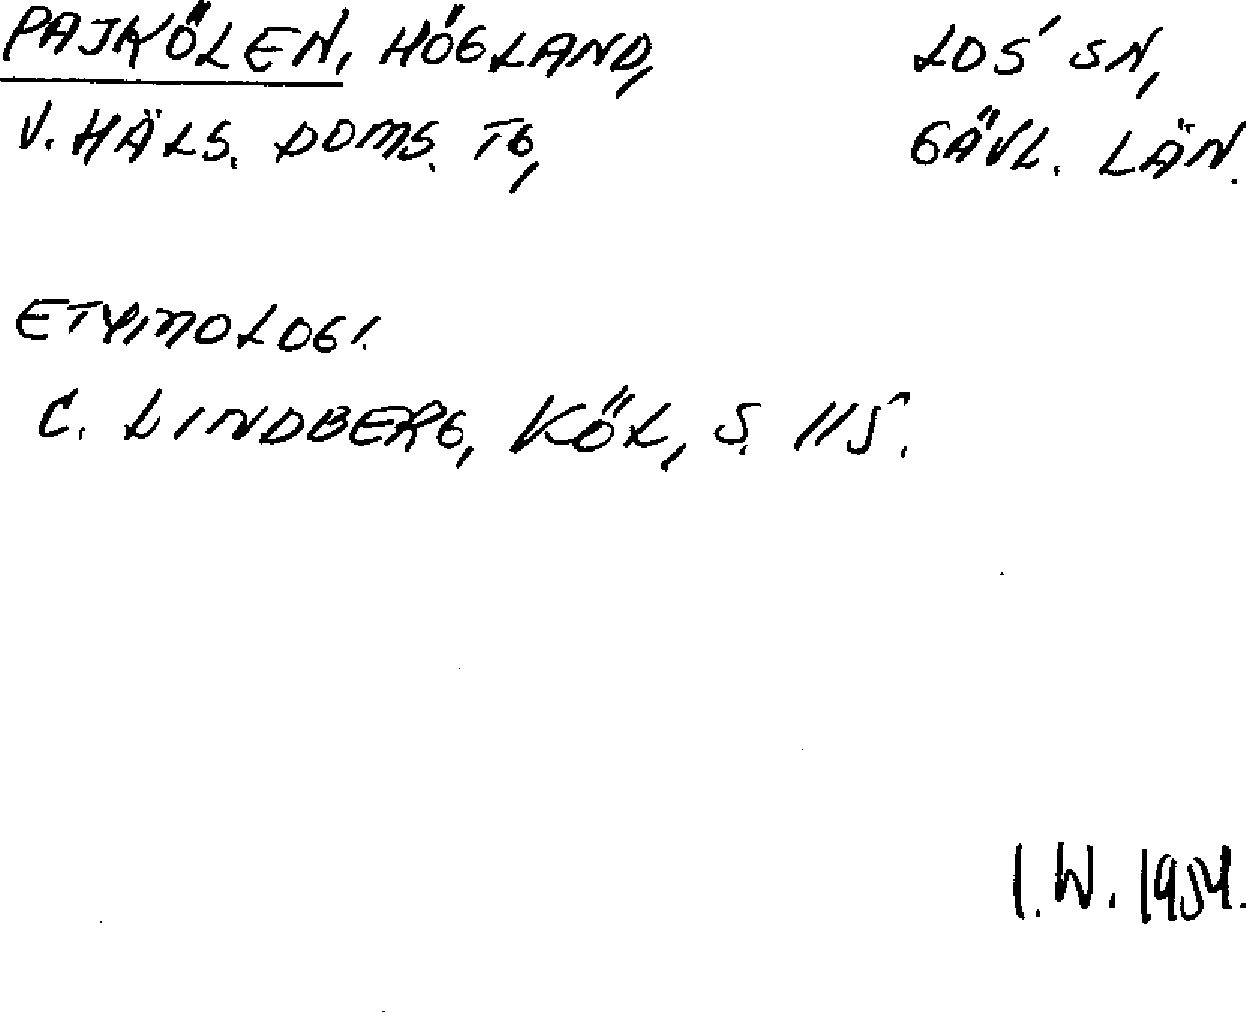 PAJKÖLEN, HÖGLAND, LOS' SN,
V. HÄLS. DOMS. TG, GÄVL. LÄN.
ETYMOLOGI.
C. LINDBERG, KÖL, S. 115.
I. W. 1954.